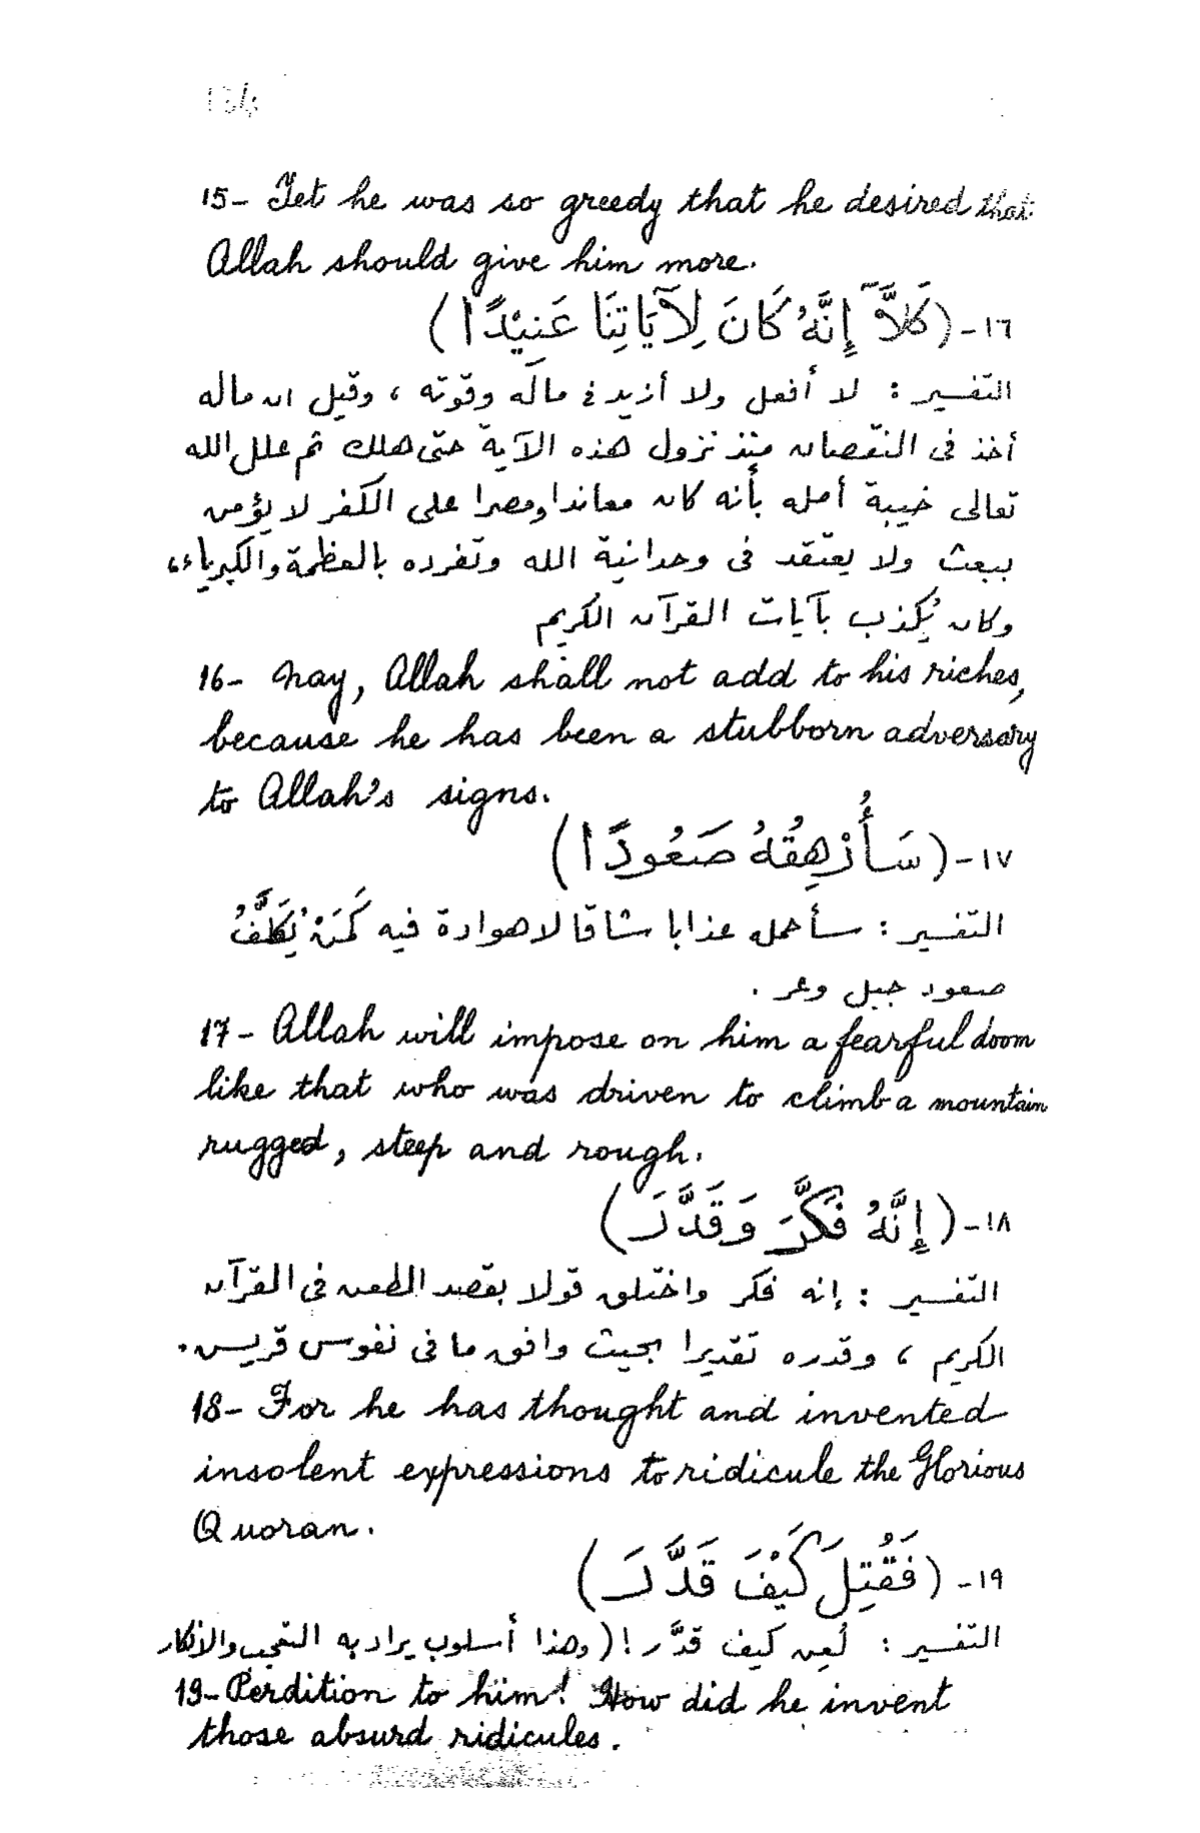 134
15- Yet he was so greedy that he desired that
Allah should give him more.
١٦- (كَلَّآ إِنَّهُ كَانَ لِآيَاتِنَا عَنِيْدًا)
التفسير : لا أفعل ولا أزيد في ماله وقوته ، وقيل ان ماله
أخذ فى النقصان منذ نزول هذه الآية حتى هلك ثم علل الله
تعالى خيبة أمله بأنه كان معاندا ومصرا على الكفر لا يؤمن
ببعث ولا يعتقد فى وحدانية الله وتفرده بالعظمة والكبرياء،
وكان يُكذب بآيات القرآن الكريم
16- Nay, Allah shall not add to his riches,
because he has been a stubborn adversary
to Allah's signs.
١٧- (سَأُرْهِقُهُ صَعُودًا)
التفسير : سأحمله عذابا شاقا لا هوادة فيه كَمَنْ يُكَلَّفُ
صعود جبل وعر .
17- Allah will impose on him a fearful doom
like that who was driven to climb a mountain
rugged, steep and rough.
١٨- (إِنَّهُ فَكَّرَ وَقَدَّرَ)
التفسير : إنه فكر واختلق قولا بقصد الطعن فى القرآن
الكريم ، وقدره تقديرا بحيث وافق ما فى نفوس قريس.
18- For he has thought and invented
insolent expressions to ridicule the Glorious
Quoran.
١٩- (فَقُتِلَ كَيْفَ قَدَّرَ)
التفسير : لُعِن كيف قدَّر ! (وهذا أسلوب يراد به التعجب والانكار
19- Perdition to him! How did he invent
those absurd ridicules.